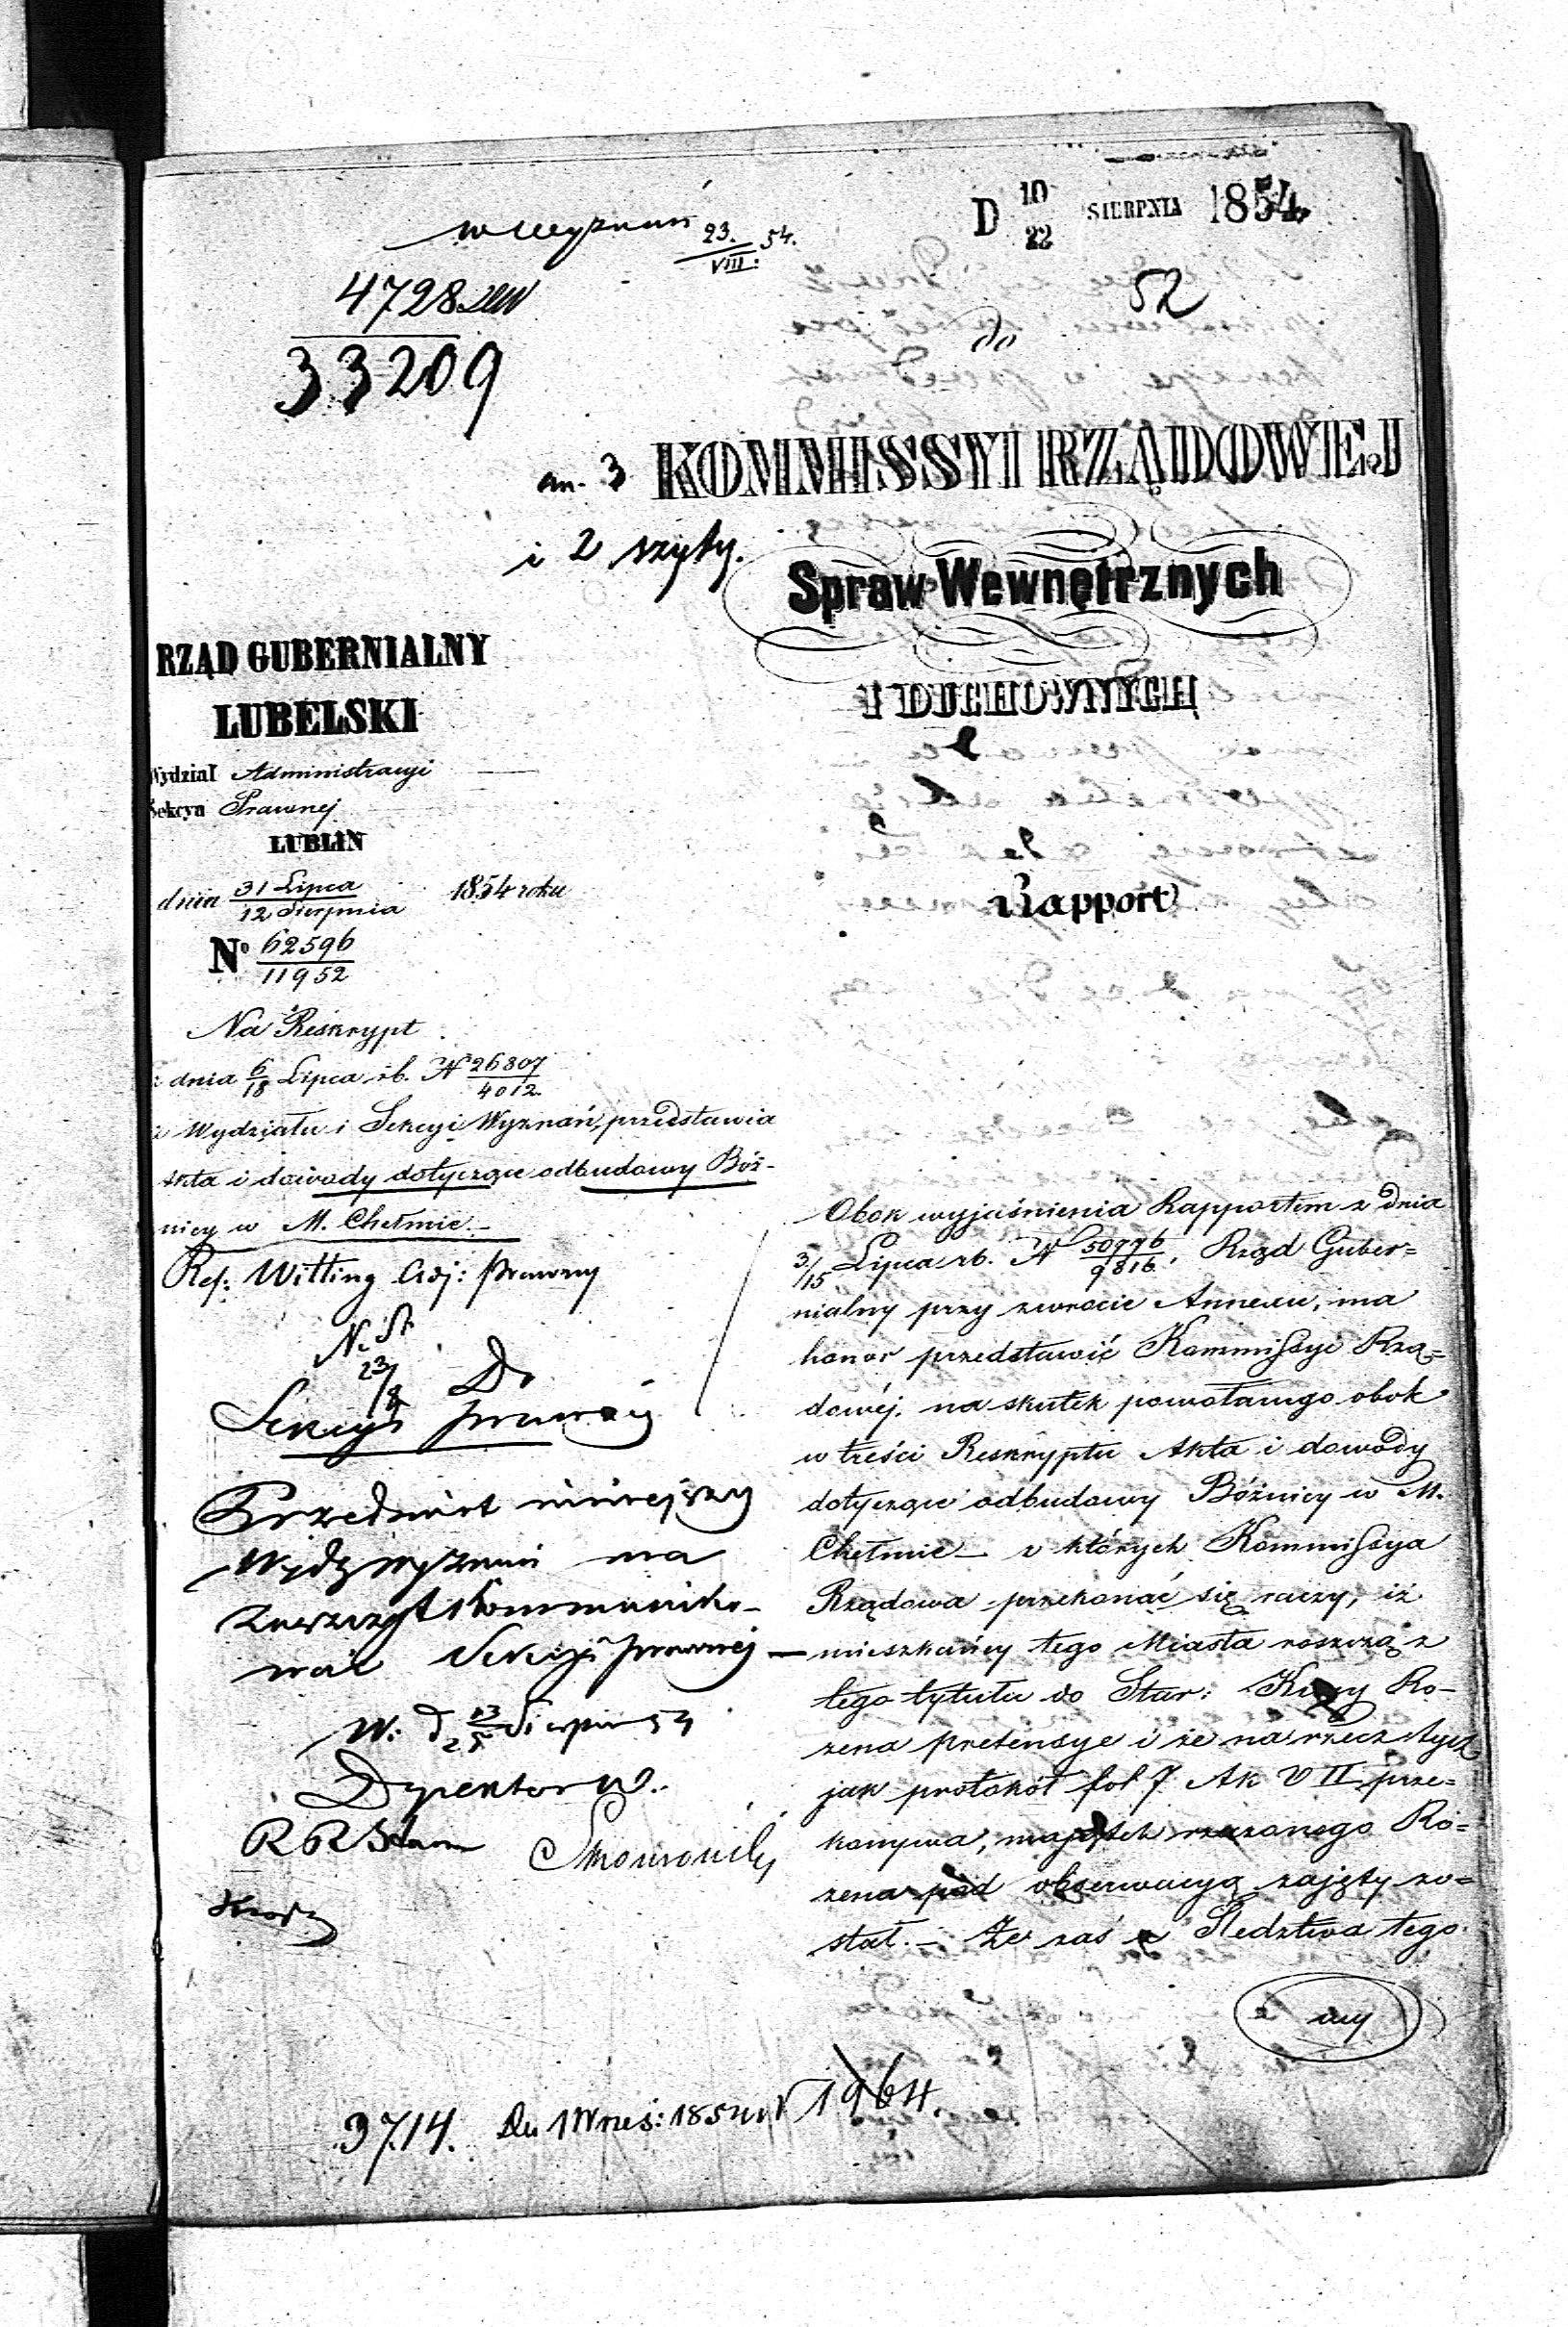 D 10/22 SIERPNIA 1854
w Wyznań 23./VIII. 54.
4728
33209
52
do
KOMMISSYI RZĄDOWEJ
an. 3
i 2 szyty.
Spraw Wewnętrznych
I DUCHOWNYCH
RZĄD GUBERNIALNY
LUBELSKI
Wydział Administracyi
Sekcya Prawnej
LUBLIN
dnia 31 Lipca/12 Sierpnia 1854 roku
No 62596/11952
Rapport
Na Reskrypt
z dnia 6/18 Lipca rb. N 26807/4012.
z Wydziału i Sekcyi Wyznań, przedstawia
akta i dowody dotyczące odbudowy Bóż-
nicy w M. Chełmie.-
Ref: Witting Adj: Prawny
23/8
Do
Sekcyi prawnej
Przedmiot niniejszy
Wydz wyznań ma
zaszczyt kommuniko-
wać Sekcyi prawnej
W. d 13/25 Sierpnia 54
Dyrektor W.
R R Stanu
Obok wyjaśnienia Rapportem z dnia
3/15 Lipca rb. N 50776/9816. Rząd Guber=
nialny przy zwrocie Annexu, ma
honor przedstawić Kommissyi Rzą=
dowéj, na skutek powołanego obok
w treści Reskryptu Akta i dowody
dotyczące odbudowy Bóżnicy w M.
Chełmie — z których Kommissya
Rządowa przekonać się raczy, iż
mieszkańcy tego Miasta roszczą z
tego tytułu do Star: Ro-
zena pretensye i że na rzecz tychż
jak protokół fol 7 Ak V II prze=
konywa, majątek rzeczonego Ro=
zena pod obserwacyą zajęty zo=
stał. — Że zaś z Śledztwa tego
3714. 1 Wrześ: 1854 1964.